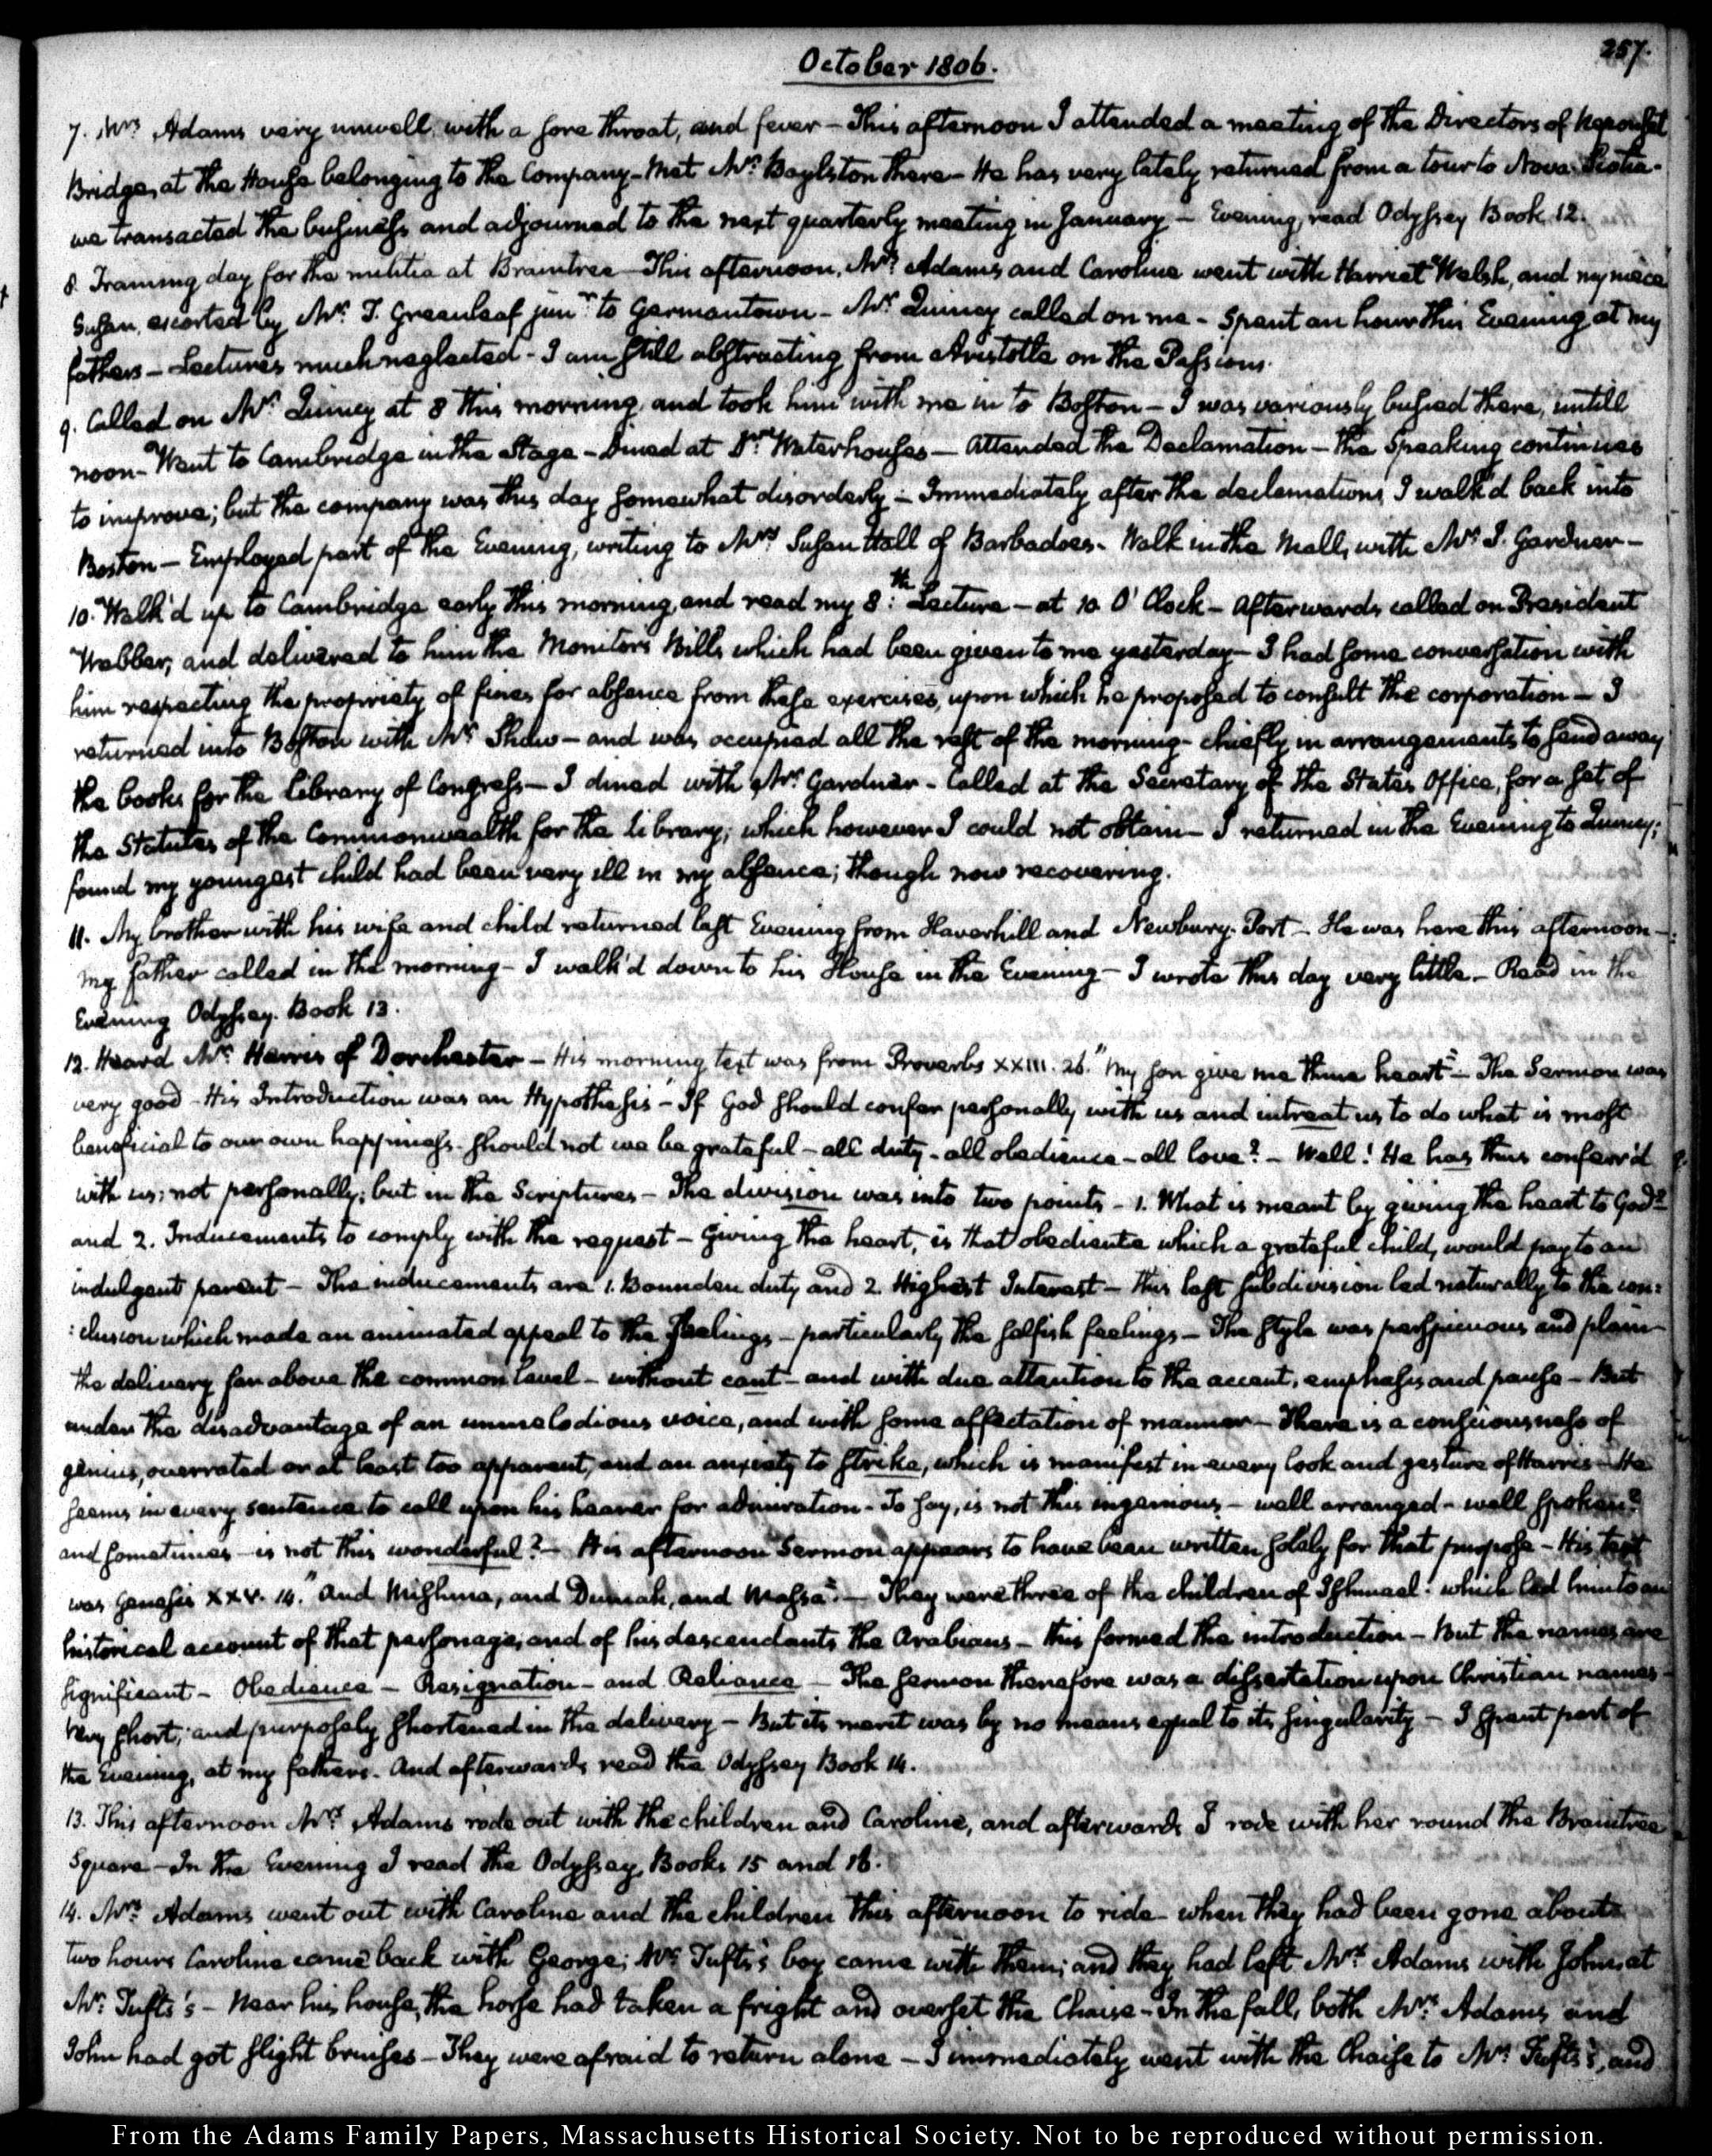 October 1806.
257.
7. Mrs Adams very unwell, with a sore throat, and fever – This afternoon I attended a meeting of the Directors of Neponset
Bridge, at the House belonging to the Company – Met Mr Boylston there – He has very lately returned from a tour to Nova-Scotia –
we transacted the business and adjourned to the next quarterly meeting in January – Evening, read Odyssey Book 12.
8. Training day for the militia at Braintree – This afternoon, Mrs Adams and Caroline went with Harriet Welsh, and my niece
Susan, escorted by Mr T. Greenleaf junr to Germantown – Mr Quincy called on me – Spent an hour this Evening at my
fathers – Lectures much neglected – I am still abstracting from Aristotle on the Passions.
9. Called on Mr Quincy at 8 this morning, and took him with me in to Boston – I was variously busied there, untill
noon – Went to Cambridge in the Stage – Dined at Dr Waterhouses – Attended the Declamation – the Speaking continues
to improve; but the company was this day somewhat disorderly – Immediately after the declamations I walk'd back into
Boston – Employed part of the Evening, writing to Mrs Susan Hall of Barbadoes – Walk in the Mall, with Mr S. Gardner –
10. Walk'd up to Cambridge early this morning, and read my 8th Lecture – at 10. O' Clock – Afterwards called on President
Webber; and delivered to him the Monitors Bills which had been given to me yesterday – I had some conversation with
him respecting the propriety of fines for absence from these exercises, upon which he proposed to consult the corporation – I
returned into Boston with Mr Shaw – and was occupied all the rest of the morning – chiefly in arrangements to send away
the books for the Library of Congress – I dined with Mr Gardner – Called at the Secretary of the States Office, for a set of
the Statutes of the Commonwealth for the library; which however I could not obtain – I returned in the Evening to Quincy;
found my youngest child had been very ill in my absence; though now recovering.
11. My brother with his wife and child returned last Evening from Haverhill and Newbury-Port – He was here this afternoon –
my father called in the morning – I walk'd down to his House in the Evening – I wrote this day very little – Read in the
Evening Odyssey. Book 13.
12. Heard Mr Harris of Dorchester – His morning text was from Proverbs XXIII. 26. "My son give me thine heart" – The Sermon was
very good – His Introduction was an Hypothesis – If God should confer personally with us and intreat us to do what is most
beneficial to our own happiness – should not we be grateful – all duty – all obedience – all love? – Well! He has thus conferr'd
with us; not personally; but in the Scriptures – The division was into two points – 1. What is meant by giving the heart to God?
and 2. Inducements to comply with the request – Giving the heart, is that obedience which a grateful child, would pay to an
indulgent parent – The inducements are 1. Bounden duty and 2. Highest Interest – this last subdivision led naturally to the con:
:clusion which made an animated appeal to the feelings – particularly the selfish feelings – The style was perspicuous and plain –
the delivery far above the common level – without cant – and with due attention to the accent, emphasis and pause – But
under the disadvantage of an unmelodious voice, and with some affectation of manner – There is a consciousness of
genius, overrated or at least too apparent, and an anxiety to strike, which is manifest in every look and gesture of Harris – He
seems in every sentence to call upon his hearer for admiration – To say, is not this ingenious – well arranged – well spoken?
and sometimes – is not this wonderful? – His afternoon Sermon appears to have been written solely for that purpose – His text
was Genesis XXV. 14. "And Mishma, and Dumah, and Massa" – They were three of the children of Ishmael: which led him to an
historical account of that personage, and of his descendants the Arabians – this formed the introduction – But the names are
significant – Obedience – Resignation – and Reliance – The sermon therefore was a dissertation upon Christian names –
Very short; and purposely shortened in the delivery – But its merit was by no means equal to its singularity – I spent part of
the Evening, at my fathers – And afterwards read the Odyssey Book 14.
13. This afternoon Mrs Adams rode out with the children and Caroline, and afterwards I rode with her round the Braintree
Square – In the Evening I read the Odyssey, Books 15 and 16.
14. Mrs Adams went out with Caroline and the children this afternoon to ride – when they had been gone about
two hours Caroline came back with George; Mr Tufts's boy came with them; and they had left Mrs Adams with John, at
Mr Tufts's – Near his house, the horse had taken a fright and overset the Chaise – In the fall, both Mrs Adams and
John had got slight bruises – They were afraid to return alone – I immediately went with the Chaise to Mr Tufts's, and
From the Adams Family Papers, Massachusetts Historical Society. Not to be reproduced without permission.